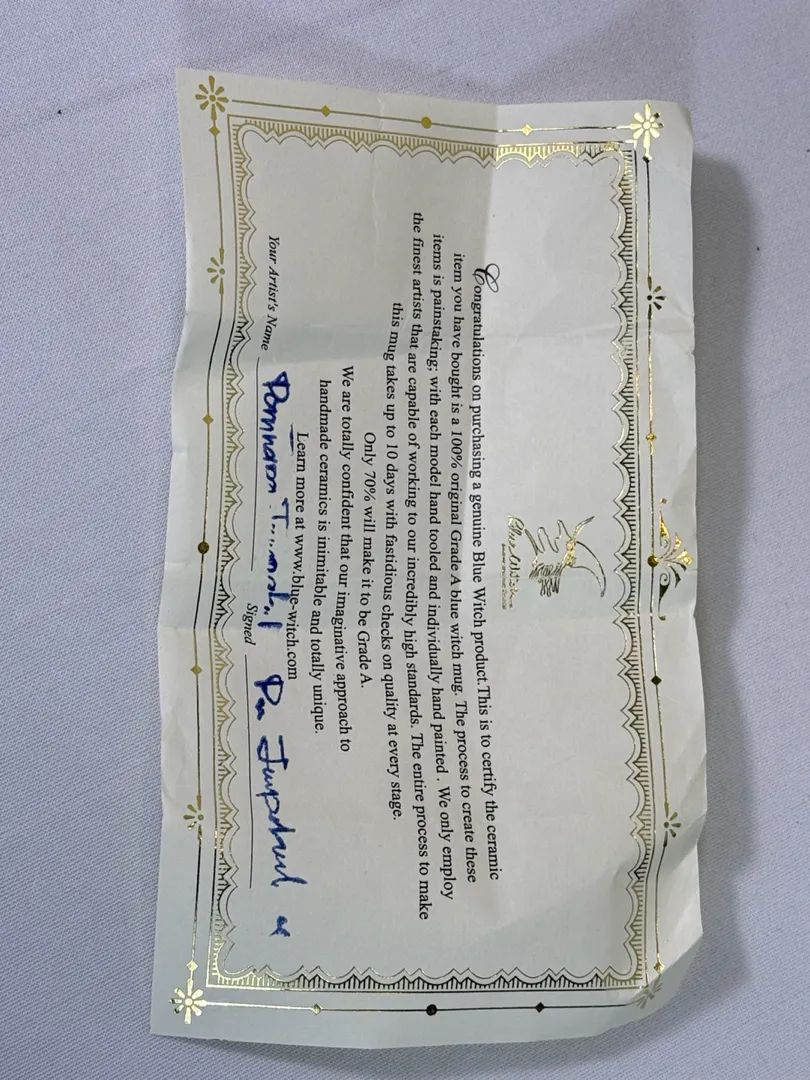 Congratulations on purchasing a genuine Blue Witch product.This is to certify the ceramic
item you have bought is a 100% original Grade A blue witch mug. The process to create these
items is painstaking; with each model hand tooled and individually hand painted . We only employ
the finest artists that are capable of working to our incredibly high standards. The entire process to make
this mug takes up to 10 days with fastidious checks on quality at every stage.
Only 70% will make it to be Grade A.
We are totally confident that our imaginative approach to
handmade ceramics is inimitable and totally unique.
Learn more at www.blue-witch.com
Your Artist's Name
Signed